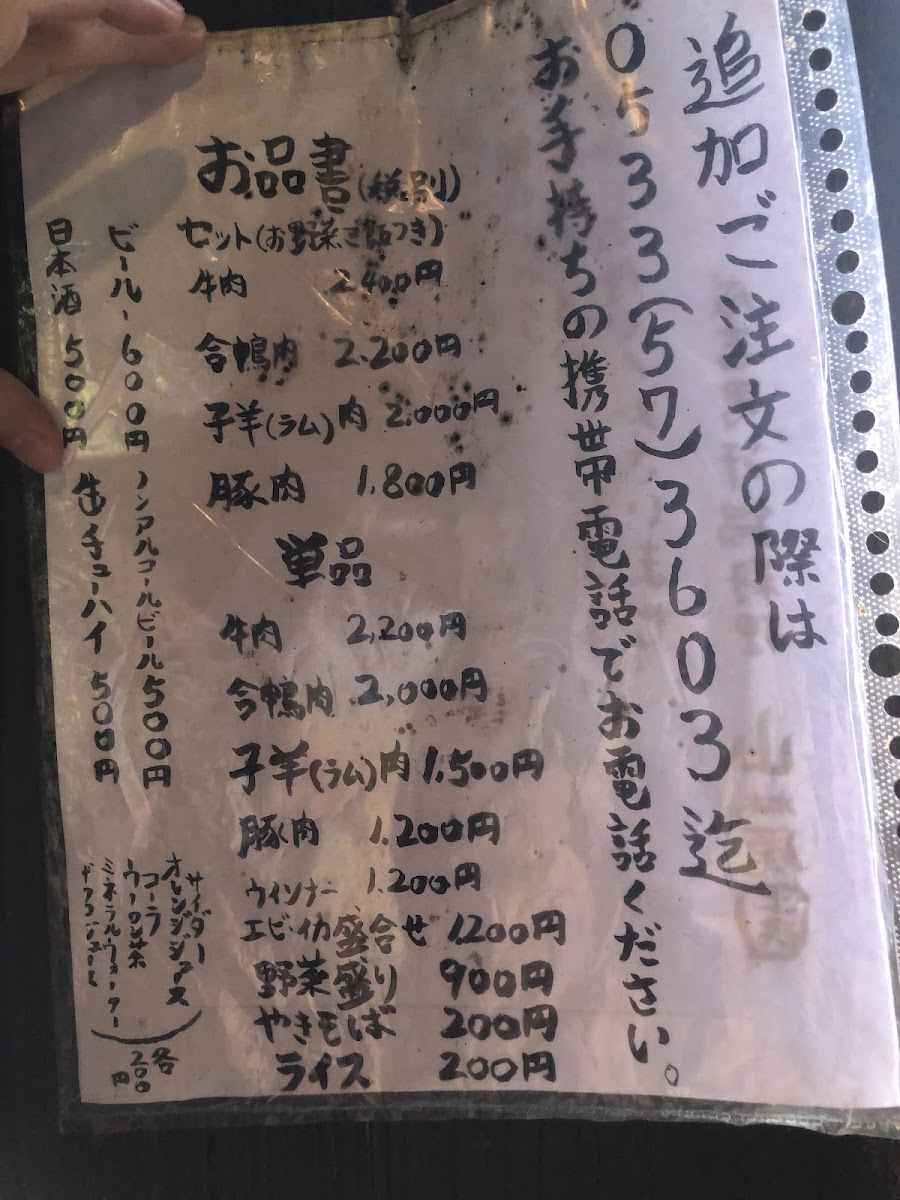 追加ご注文の際は
0533(57)3603迄
お手持ちの携帯電話でお電話ください。
お品書(税別)
セット(お野菜ご飯つき)
牛肉 2,400円
合鴨肉 2,200円
子羊(ラム)肉 2,000円
豚肉 1,800円
単品
牛肉 2,200円
合鴨肉 2,000円
子羊(ラム)肉 1,500円
豚肉 1,200円
ウインナー 1,200円
エビ・イカ盛合せ 1,200円
野菜盛り 900円
やきそば 200円
ライス 200円
ビール 600円 ノンアルコールビール 500円
日本酒 500円 缶チューハイ 500円
サイダー
オレンジジュース
コーラ
ウーロン茶
ミネラルウォーター
各200円